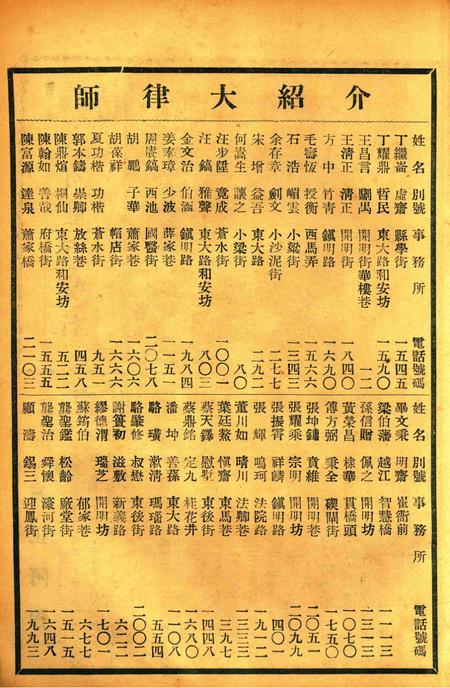 介紹大律師
姓名 別號 事務所 電話號碼
丁繼崙 虛齋 縣學街 一五四五
丁耀鼎 哲民 東大路和安坊 一五九〇
王昌言 開明街華樓巷
王清正 清正 開明街 一八四〇
方中 竹靑 鎭明路 一〇九九
毛壽恆 授衡 西馬弄 一五六六
石浩 嵋雲 小梁街 一三四三
余存章 劍文 小沙泥街 二七七
宋增 益吾 東大路 二九二
何嵩生 讓之 小梁街 八〇
汪步陞 竟成 蒼水街 一〇〇一
汪鎬 雅聲 東大路和安坊 八〇三
金文治 伯涵 鎭明路 一九八四
姜奉璋 少波 薛家巷 一一五一
周虡鎬 西池 國醫街 二〇七八
胡鵬 子華 蕭家巷 一六〇六
胡葆祥 帽店街 一六六六
夏功楷 功楷 蒼水街 九五一
郭本鑄 崇卿 放絲巷 四五八
陳鼎煊 桐仙 東大路和安坊 五二二
陳翰如 善哉 府橋街 一五五五
陳富源 達泉 蕭家橋 二一〇三
姓名 別號 事務所 電話號碼
畢文秉 明齋 崔衙前 一一一三
梁伯藩 越江 智慧橋 一三一三
孫信贈 佩之 開明坊
黃榮昌 棣華 貫橋頭 一〇七〇
傅方弼 秉全 碶閘街 一七五〇
張坤鏞 賁維 開明巷 二〇五一
張耀秉 宗明 開明坊 二〇九九
張振霄 祥麟 鎭明路 四〇一
張輝 鳴珂 法院路 一九一二
董川如 晴川 法卿巷 一三三一
葉廷鰲 愼齋 東馬巷 三九七
蔡天鐸 慰墅 東後街 四四八
蔡鼎銘 定九 桂花井 一六八〇
潘坤 善葆 東大路 一一〇八
駱璜 漱清 瑪瑙路 五五四
駱肇修 叔懋 東後街 二〇〇二
謝簧初 滋敷 新義路 六二二
繆德渭 瑞芝 開明坊 一七〇一
蘇銘伯 郁家巷 六七七
龔聖鑑 松齡 廠堂街 一五一五
龔聖治 舜懷 濠河街 六四八
顧濤 錫三 迎鳳街 一九九三